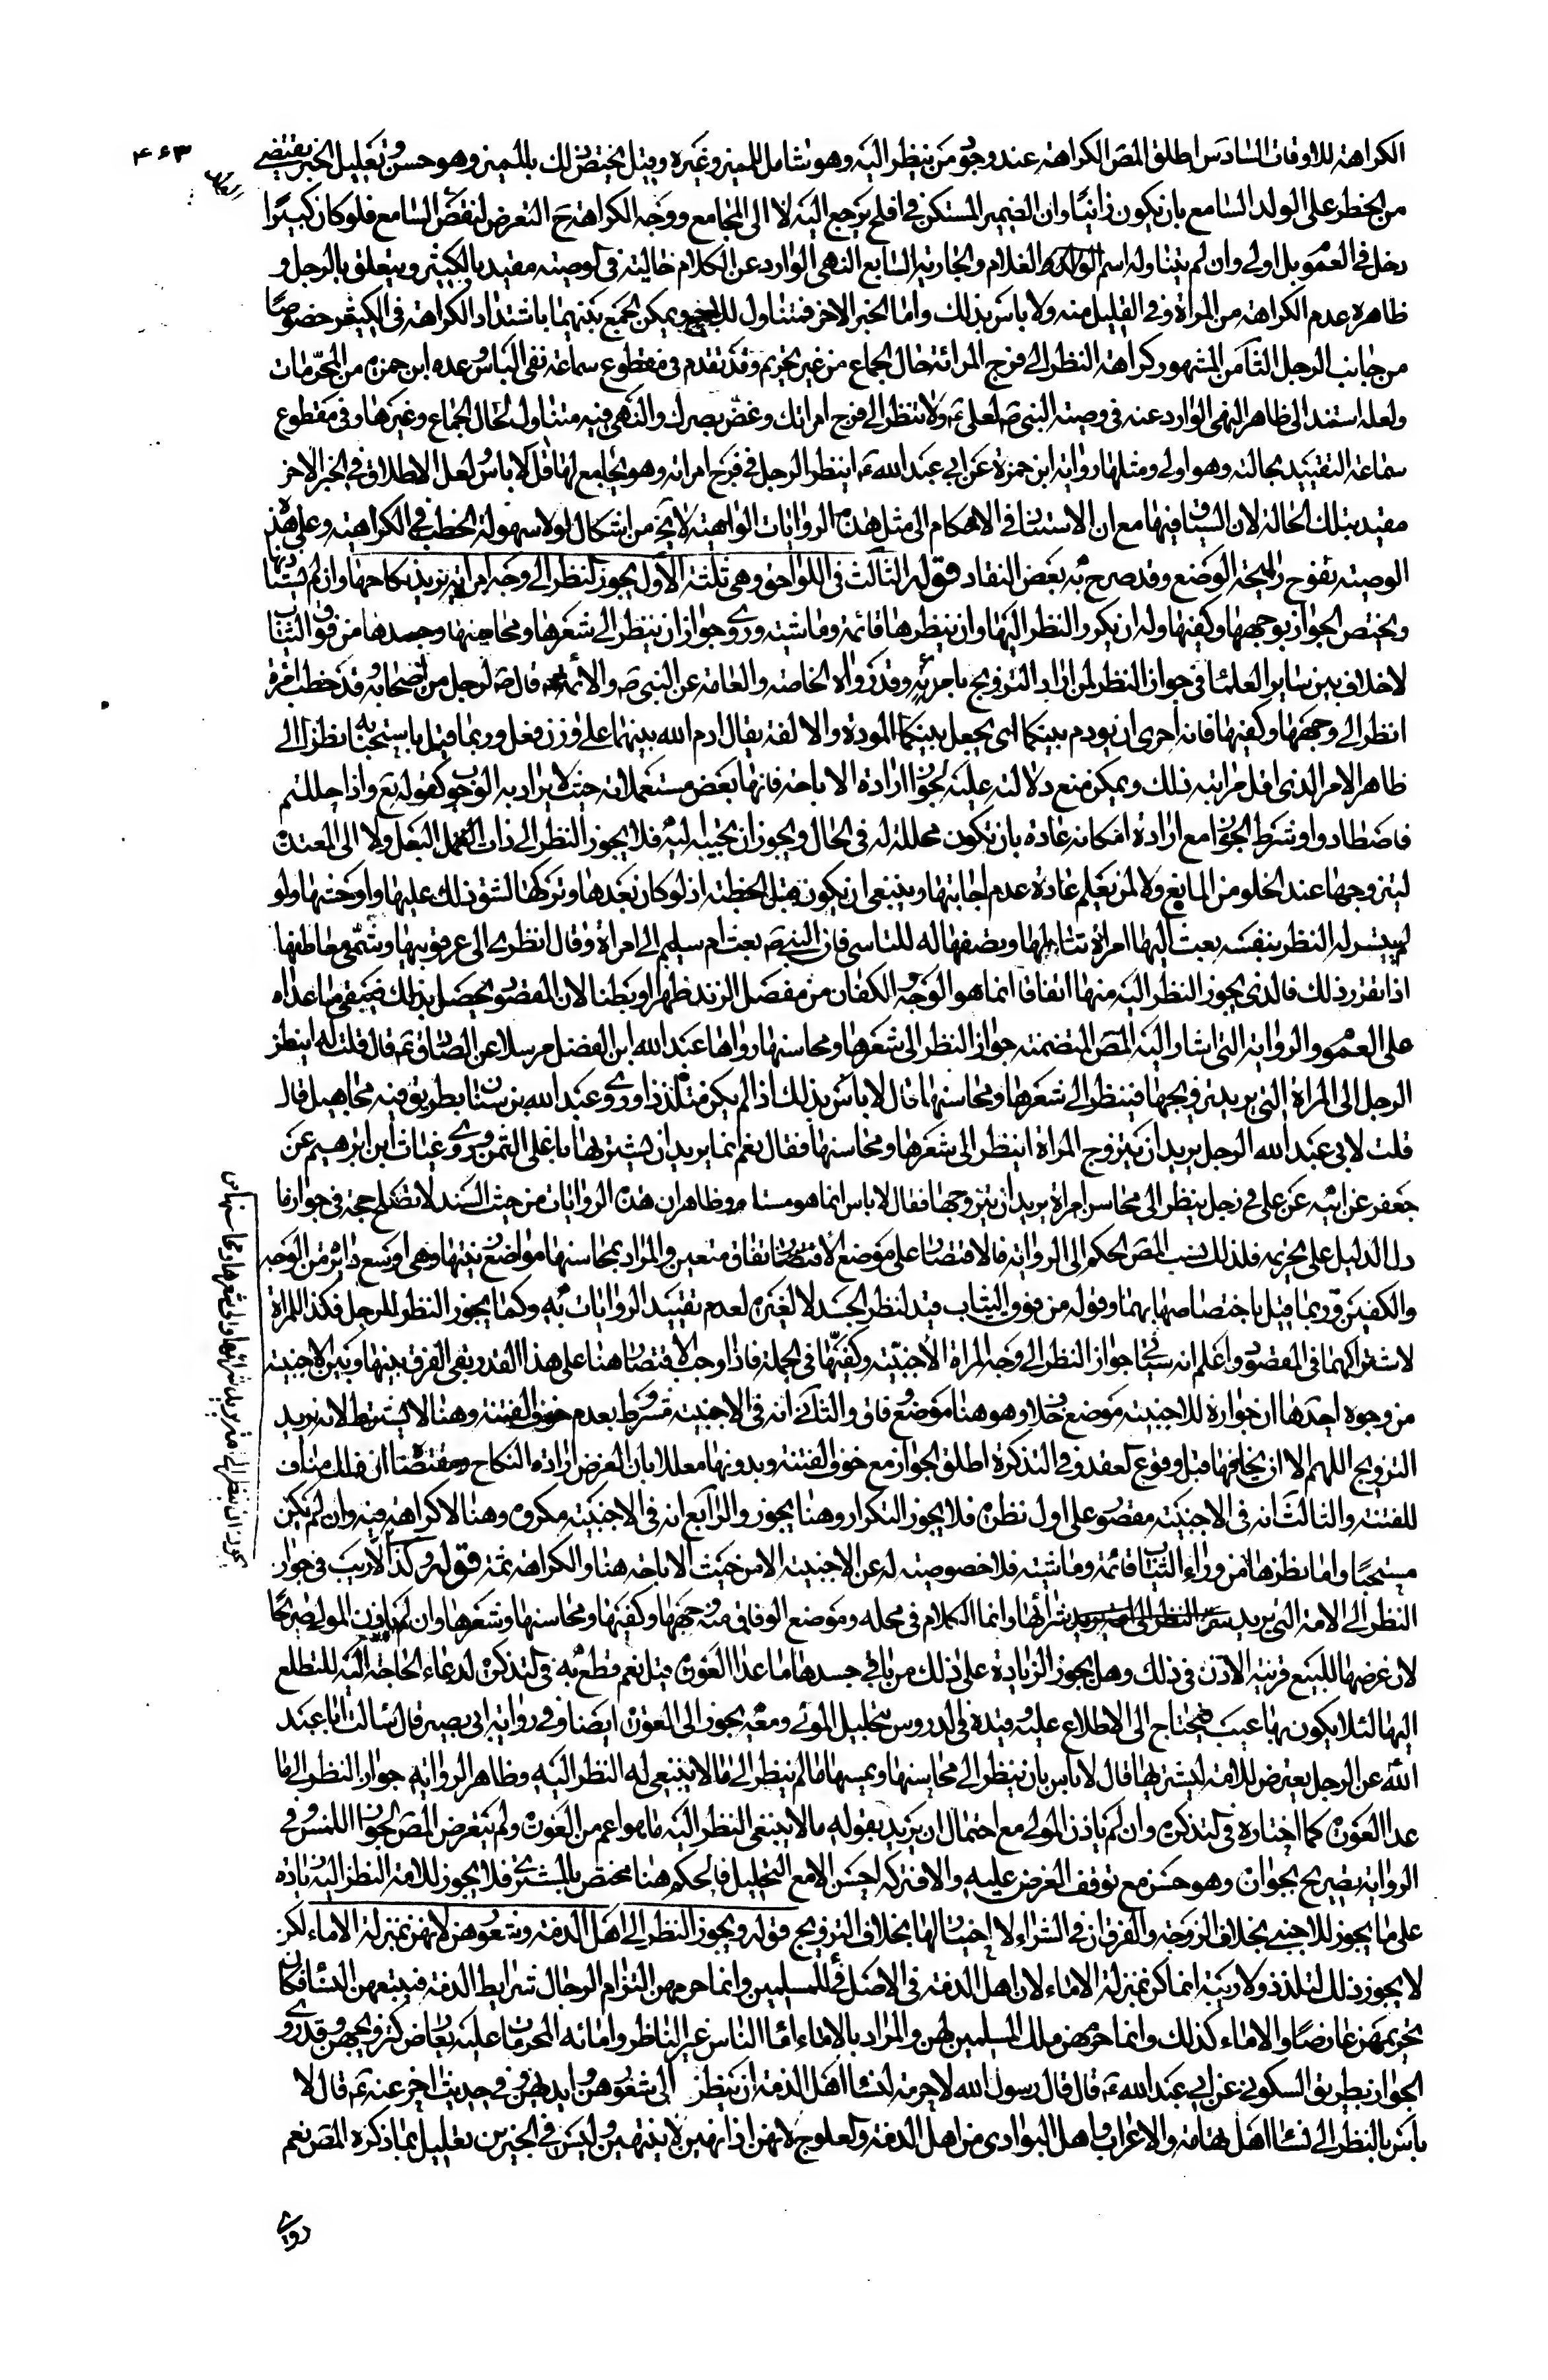 ٤٦٣
الكراهة للاوقات السادس اطلق المص الكراهة عند وجود من ينظر اليه وهو شامل للمميز وغيره وقيل يختص ذلك بالمميز وهو حسن وتعليل الخبر يقتضى
من الخطر على الولد السامع بان يكون زانيا وان الضمير المستكن في افلح يرجع اليه لا الى المجامع ووجه الكراهة ح التعرض لنقص السامع فلو كان كبيرا
دخل في العموم بل اولى وان لم يتناوله اسم الغلام والجارية السابع النهى الوارد عن الكلام حاليته في الوصية مقيد بالكثير ويتعلق بالرجل و
ظاهره عدم الكراهة من المراة وفي القليل منه ولا باس بذلك واما الخبر الاخر فمتناول للجميع ويمكن الجمع بينهما باشتداد الكراهة في الكثير خصوصا
من جانب الرجل الثامن المشهور كراهة النظر الى فرج المرائة حال الجماع من غير تحريم وقد تقدم في مقطوع سماعة نفى الباس وعده ابن حمزة من المحرمات
ولعله استند الى ظاهر النهى الوارد عنه في وصية النبى ص لعلى ع ولا تنظر الى فرج امراتك وغض بصرك والنهى فيه متناول لحال الجماع وغيرها وفي مقطوع
سماعة التقييد بحالته وهو اولى ومثلها رواية ابن حمزة عن ابى عبد الله ع اينظر الرجل في فرج امراته وهو يجامعها قال لا باس ولعل الاطلاق في الخبر الاخر
مقيد بتلك الحالة لان السياق فيها مع ان الاستناد في الاحكام الى مثل هذه الروايات الواهية لا يخ من اشكال لولا سهولة الخطب في الكراهية وعلى هذه
الوصية تفوح رايحة الوضع وقد صرح به بعض النقاد قوله الثالث في اللواحق وهى ثلثة الاول يجوز النظر الى وجه امراة يريد نكاحها وان لم يستاذنها
ويختص الجواز بوجهها وكفيها وله ان يكرر النظر اليها وان ينظرها قائمة وماشية وروى جواز ان ينظر الى شعرها ومحاسنها وجسدها من فوق الثياب
لا خلاف بين ساير العلماء في جواز النظر لمن اراد التزويج بامراة وقد رواه الخاصة والعامة عن النبى ص والائمة ع قال ص لرجل من اصحابه وقد خطب امراة
انظر الى وجهها وكفيها فانه احرى ان يودم بينكما اى يجعل بينكما المودة والالفة يقال ادم الله بينهما على وزن فعل وربما قيل باستحبابه نظرا الى
ظاهر الامر الذى اقل مراتبه ذلك ويمكن منع دلالته عليه لجواز ارادة الاباحة فانها بعض مستعملاته حيث لا يراد به الوجوب كقوله تع واذا حللتم
فاصطادوا وشرط الجواز مع ارادة امكانه عادة بان تكون محللة له في الحال ويجوز ان تجيبه اليه فلا يجوز النظر الى ذات البعل ولا الى المعتدة
ليتزوجها عند الخلو من المانع ولا لمن يعلم عادة عدم اجابتها وينبغى ان يكون قبل الخطبة اذ لو كان بعدها وتركها لشق ذلك عليها واوحشها ولو
لم يتيسر له النظر بنفسه بعث اليها امراة تتاملها وتصفها له للتاسى فان النبى ص بعث ام سليم الى امراة وقال انظرى الى عرقوبيها وشمى معاطفها
اذا تقرر ذلك فالذى يجوز النظر اليه منها اتفاقا انما هو الوجه والكفان من مفصل الزند ظهرا وبطنا لان المقصود يحصل بذلك فيبقى ما عداه
على العموم والرواية التى اشار اليه المص المتضمنة جواز النظر الى شعرها ومحاسنها رواها عبد الله ابن الفضل مرسلا عن الصادق ع قال قلت له اينظر
الرجل الى المراة التى يريد تزويجها فينظر الى شعرها ومحاسنها قال لا باس بذلك اذا لم يكن متلذذا وروى عبد الله بن سنان بطريق فيه مجاهيل قال
قلت لابى عبد الله الرجل يريد ان يتزوج المراة اينظر الى شعرها ومحاسنها فقال نعم انما يريد ان يشتريها باغلى الثمن وروى غياث ابن ابرهيم عن
جعفر عن ابيه عن على في رجل ينظر الى محاسن امراة يريد ان يتزوجها فقال لا باس انما هو مستام وظاهر ان هذه الروايات من حيث السند لا تصلح حجة في جواز ما
دل الدليل على تحريمه فلذلك نسب المص الحكم الى الرواية فالاقتصار على موضع الاتفاق متعين والمراد بمحاسنها مواضع زينتها وهى اوسع دائرة من الوجه
والكفين وربما قيل باختصاصها بهما وقوله من فوق الثياب قيد لنظر الجسد لا لغيره لعدم تقييد الروايات به وكما يجوز النظر للرجل فكذا المراة
لاشتراكهما في المقصود واعلم انه سياتى جواز النظر الى وجه المراة الاجنبية وكفيها في الجملة فاذا وجب الاقتصار هنا على هذا القدر بقى الفرق بينها وبين الاجنبية
من وجوه احدها ان جوازه للاجنبية موضع خلاف وهو هنا موضع وفاق والثانى انه في الاجنبية مشروط بعدم خوف الفتنة وهنا لا يشترط لانه يريد
التزويج اللهم الا ان يخافها قبل وقوع العقد وفي التذكرة اطلق الجواز مع خوف الفتنة وبدونها معللا بان الغرض ارادة النكاح ومقتضاه ان ذلك مناف
للفتنة والثالث انه في الاجنبية مقصور على اول نظرة فلا يجوز التكرار وهنا يجوز والرابع انه في الاجنبية مكروه وهنا لا كراهة فيه وان لم يكن
مستحبا واما نظرها من وراء الثياب قائمة وماشية فلا خصوصية له عن الاجنبية الا من حيث الاباحة هنا والكراهة ثمة قوله وكذا لا ريب في جواز
النظر الى الامة التى يريد شرائها وانما الكلام في محله وموضع الوفاق منه وجهها وكفيها ومحاسنها وشعرها وان لم ياذن المولى صريحا
لان عرضها للبيع قرينة الاذن في ذلك وهل يجوز الزيادة على ذلك من باقي جسدها ما عدا العورة قيل نعم قطع به في التذكرة لدعاء الحاجة اليه للتطلع
اليها لئلا يكون بها عيب فيحتاج الى الاطلاع عليه وقيده في الدروس بتحليل المولى ومعه يجوز الى العورة ايضا وفي رواية ابى بصير قال سالت ابا عبد
الله عن الرجل يعترض للامة ليشتريها قال لا باس بان ينظر الى محاسنها ويمسها ما لم ينظر الى ما لا ينبغى له النظر اليه وظاهر الرواية جواز النظر الى ما
عدا العورة كما اختاره في التذكرة وان لم ياذن المولى مع احتمال ان يريد بقوله ما لا ينبغى النظر اليه ما هو اعم من العورة ولم يتعرض المص لجواز اللمس وفي
الرواية تصريح بجوازه وهو حسن مع توقف الغرض عليه والا فتركه احسن الا مع التحليل فالحكم هنا مختص بالمشترى فلا يجوز للامة النظر اليه زيادة
على ما يجوز للاجنبى بخلاف الزوجة والفرق ان في الشراء لا اختيار لها بخلاف التزويج قوله ويجوز النظر الى اهل الذمة وشعورهن لانهن بمنزلة الاماء لكن
لا يجوز ذلك لتلذذ ولا ريبة انما كن بمنزلة الاماء لان اهل الذمة في الاصل فئ للمسلمين وانما حرمهن التزام الرجال شرايط الذمة فيتبعهن النساء فكان
تحريمهن عارضا والاماء كذلك وانما حرمهن ملك المسلمين لهن والمراد بالاماء اماء الناس غير الناظر وامائه المحرمات عليه بعارض كتزويجهن وقد روى
الجواز بطريق السكونى عن ابى عبد الله ع قال قال رسول الله لا حرمة لنساء اهل الذمة ان ينظر الى شعورهن وايديهن وفي حديث اخر عنه ع قال لا
باس بالنظر الى نساء اهل تهامة والاعراب واهل البوادى من اهل الذمة والعلوج لانهن اذا نهين لا ينتهين وليس في الخبرين تعليل بما ذكره المص نعم